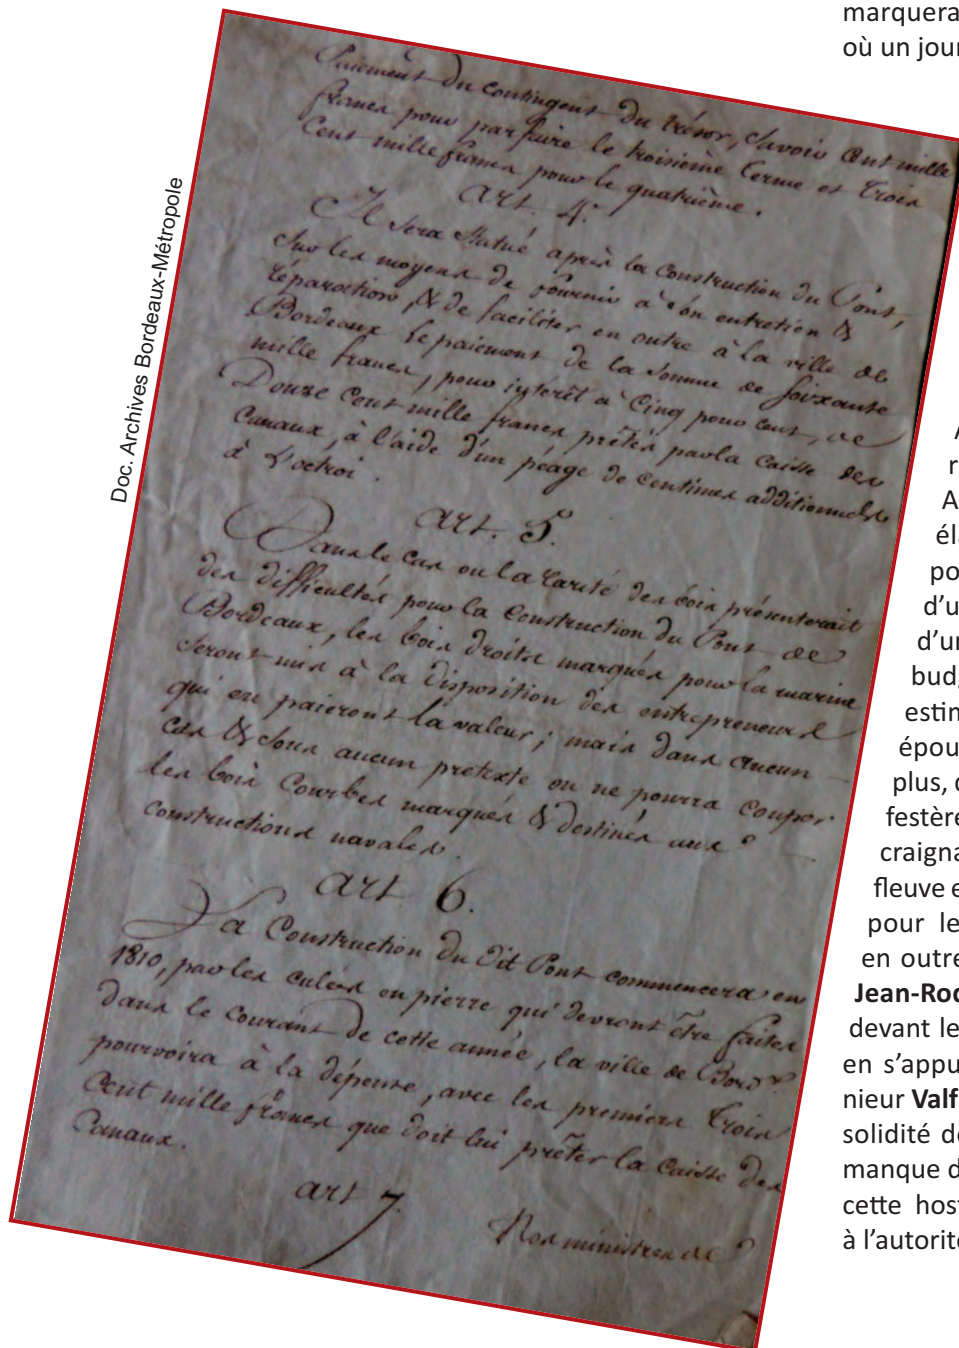 marquera
où un jour
Doc. Archives Bordeaux-Métropole
Paiement du Contingent du trésor, Savoir Cent mille
francs pour parfaire le troisième terme et Trois
Cent mille francs pour le quatrième.
Art. 4.
Il sera Statué après la Construction du Pont,
Sur les moyens de fournir à son entretien &
réparation, & de faciliter en outre à la ville de
Bordeaux le paiement de la Somme de Soixante
mille francs, pour intérêt à Cinq pour cent, de
Douze Cent mille francs prêtés par la Caisse des
Canaux, à l'aide d'un péage de Centimes additionnels
à L'octroi.
Art. 5.
Dans le Cas ou la rarité des bois présenterait
des difficultés pour la Construction du Pont de
Bordeaux, les bois droits marqués pour la marine
Seront mis à la Disposition des entrepreneurs
qui en paieront la valeur; mais dans aucun
Cas & sous aucun pretexte on ne pourra Couper
les bois Courbes marqués & destinés aux
Constructions navales.
Art 6.
La Construction du dit Pont commencera en
1810, par les culées en pierre qui devront être faites
dans le Courant de cette année, la ville de Bordx
pourvoira à la dépense, avec les premiers Trois
Cent mille francs que doit lui prêter la Caisse des
Canaux.
Art 7.
Nos ministres de
A
r
A
éla
po
d'u
d'un
budg
estin
épou
plus, d
festère
craigna
fleuve e
pour le
en outre
Jean-Roc
devant le
en s'appu
nieur Valf
solidité de
manque d
cette host
à l'autorité